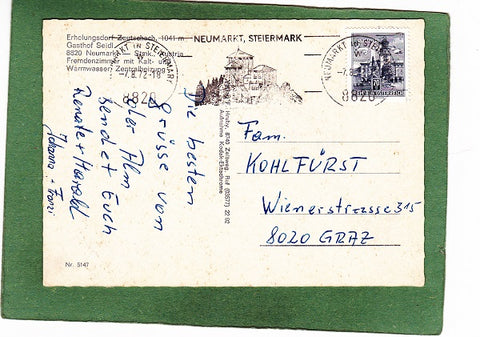 Erholungsdorf Zeutschach, 1041 m
Gasthof Seidl
8820 Neumarkt - Stmk. Austria
Fremdenzimmer mit Kalt- u.
Warmwasser, Zentralheizung
NEUMARKT IN STEIERMARK
-7.8.72-18
8820
NEUMARKT, STEIERMARK
NEUMARKT IN STEIERMARK
-7.8.
8820
Die besten
Grüsse von
der Alm
sendet Euch
Renate + Harald
Johanna + Franzi
8740 Zeltweg, Ruf (03577) 22 02
Aufnahme Kodak-Ektachrome
Fam.
KOHLFÜRST
Wienerstrasse 315
8020 GRAZ
Nr. 5147